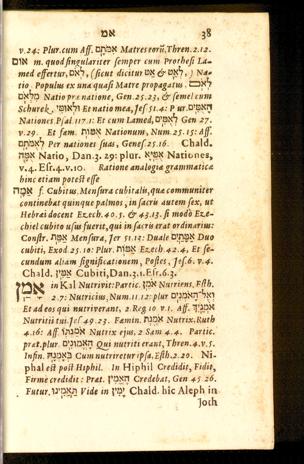 אמ 38
v.24: Plur.cum Aff. אמתם Matres eorū, Thren. 2.12.
אום m. quod singulariter semper cum Prothesi La-
med effertur, לאם, (sicut dicitur & ) Na-
tio Populus ex una quasi Matre propagatus. לאום
Natio præ natione, Gen. 25.23, & semel cum
Schurek Et natio mea, Jes. 51.4: Plur.
Nationes Psal. 117.1: Et cum Lamed, לאמים Gen 27.
v.29. Et fœm. אמות Nationum, Num. 25.15: Aff.
לאמתם Per nationes suas, Genes. 25.16. Chald.
אמה Natio, Dan. 3. 29: plur. אמיא Nationes,
v.4. Esr. 4.v.10. Ratione analogia grammatica
hinc etiam potest esse
אמה f. Cubitus, Mensura cubitalis, quæ communiter
continebat quinque palmos, in sacris autem sex, ut
Hebræi docent Ezech. 40.5. & 43.13. si modò Eze-
chiel cubito usus fuerit, qui in sacris erat ordinarius:
Constr. אמת Mensura, Jer 51.13: Duale אמתים Duo
cubiti, Exod 25.10: Plur. אמות Ezech. 42.4. Et se-
cundum aliam significationem, Postes, Jes. 6. v.4.
Chald. אמין Cubiti, Dan. 3.1. Esr. 6.3.
אמן in Kal Nutrivit: Partic. אמן Nutriens, Esth.
2.7: Nutricius, Num. 11.12: plur
Et ad eos qui nutriverant, 2 Reg 10 v.1. Aff.
Nutritii tui, Jes 49.23. Fœmin. אמנת Nutrix, Ruth
4.16: Aff. אמנתו Nutrix ejus, 2 Sam 4.4. Partic.
præt. plur. האמונים Qui nutriti erant, Thren. 4.v.5.
Infin. באמנה Cum nutriretur ipsa, Esth. 2.20. Ni-
phal est post Hiphil. In Hiphil Credidit, Fidit,
Firmè credidit: Præt. האמין Credebat, Gen 45 26.
Futur. Vide in ימין Chald. hîc Aleph in
Joth